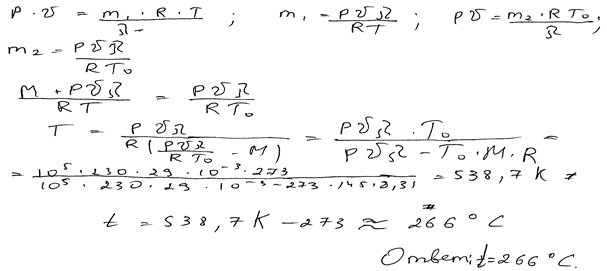 P · V = m₁ · R · T / Ω ; m₁ = PVΩ / RT ; PV = m₂ · RT₀ / Ω ;
m₂ = PVΩ / RT₀
M + PVΩ / RT = PVΩ / RT₀
T = PVΩ / R(PVΩ / RT₀ - M) = PVΩ · T₀ / PVΩ - T₀ · M · R =
= 10⁵ · 230 · 29 · 10⁻³ · 273 / 10⁵ · 230 · 29 · 10⁻³ - 273 · 145 · 8,31 = 538,7 K
t = 538,7 K - 273 ≈ 266 °C
Ответ: t = 266 °C.